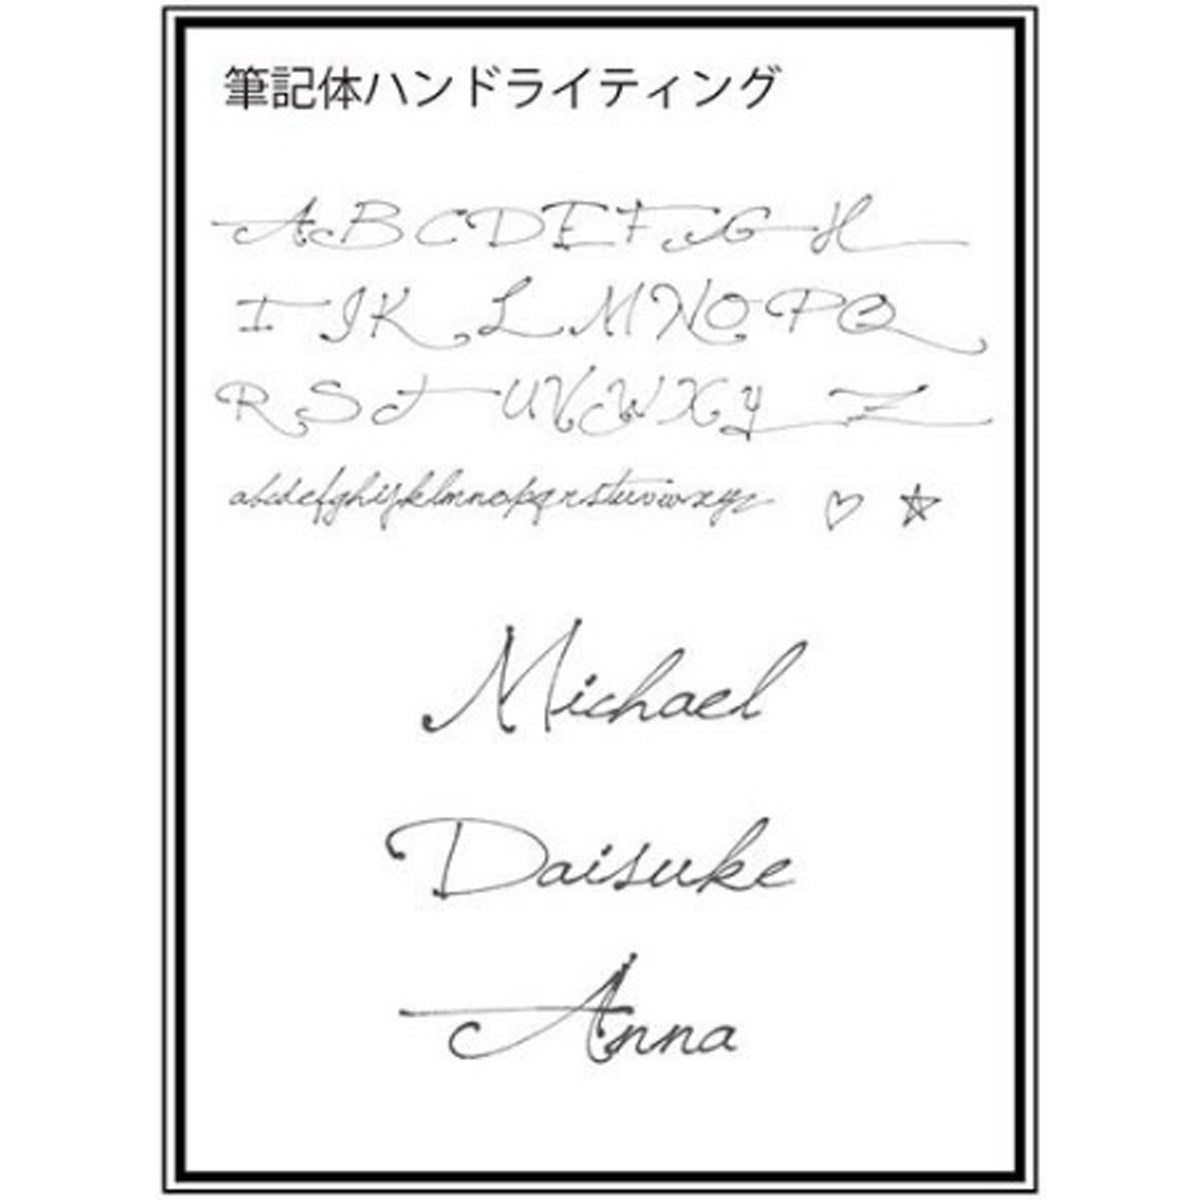 筆記体ハンドライティング
ABCDEFGH
IJKLMNOPQ
RSTUVWXYZ
abcdefghijklmnopqrstuvwxyz ♡ ☆
Michael
Daisuke
Anna